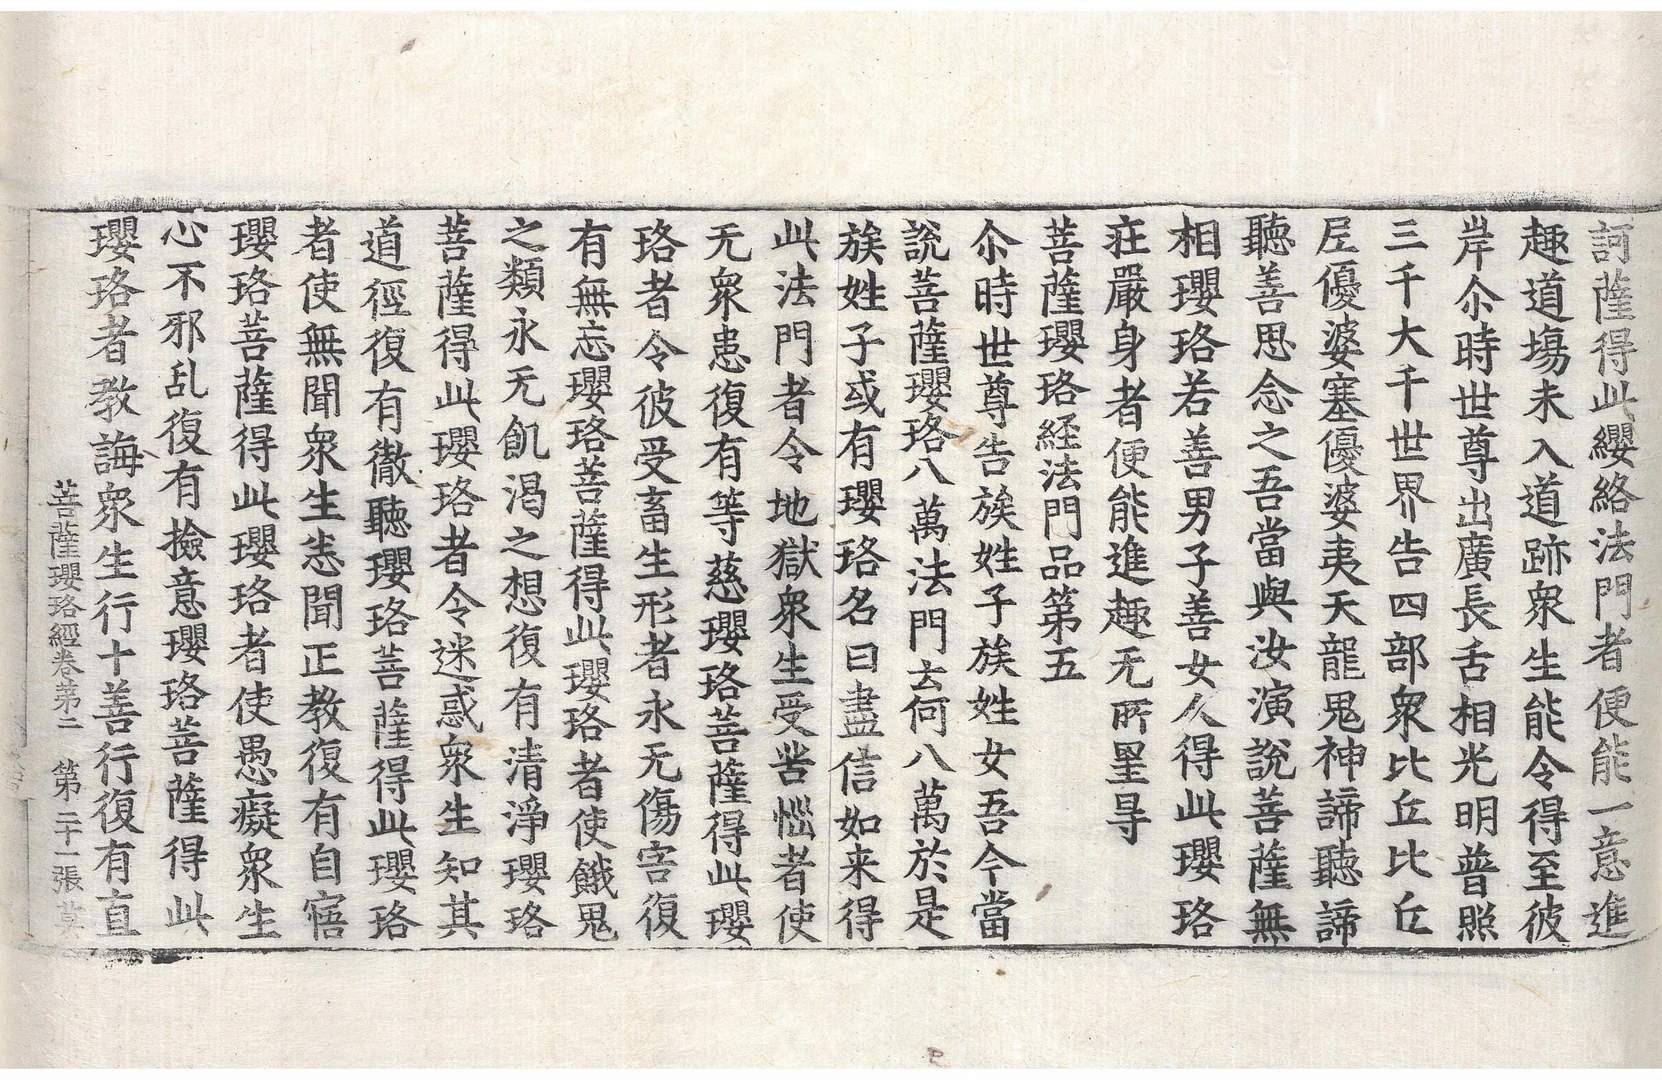 訶薩得此纓絡法門者便能一意進
趣道塲未入道跡衆生能令得至彼
岸尒時世尊出廣長舌相光明普照
三千大千世界告四部衆比丘比丘
尼優婆塞優婆夷天龍鬼神諦聽諦
聽善思念之吾當與汝演說菩薩無
相瓔珞若善男子善女人得此瓔珞
莊嚴身者便能進趣无所罣㝵
菩薩瓔珞経法門品第五
尒時世尊告族姓子族姓女吾今當
說菩薩瓔珞八萬法門云何八萬於是
族姓子或有瓔珞名曰盡信如来得
此法門者令地獄衆生受苦惱者使
无衆患復有等慈瓔珞菩薩得此瓔
珞者令彼受畜生形者永无傷害復
有無忘瓔珞菩薩得此瓔珞者使餓鬼
之類永无飢渴之想復有清淨瓔珞
菩薩得此瓔珞者令迷惑衆生知其
道徑復有徹聽瓔珞菩薩得此瓔珞
者使無聞衆生恙聞正教復有自寤
瓔珞菩薩得此瓔珞者使愚癡衆生
心不邪乱復有撿意瓔珞菩薩得此
瓔珞者教誨衆生行十善行復有直
菩薩瓔珞經卷苐二 第二十一張 莫